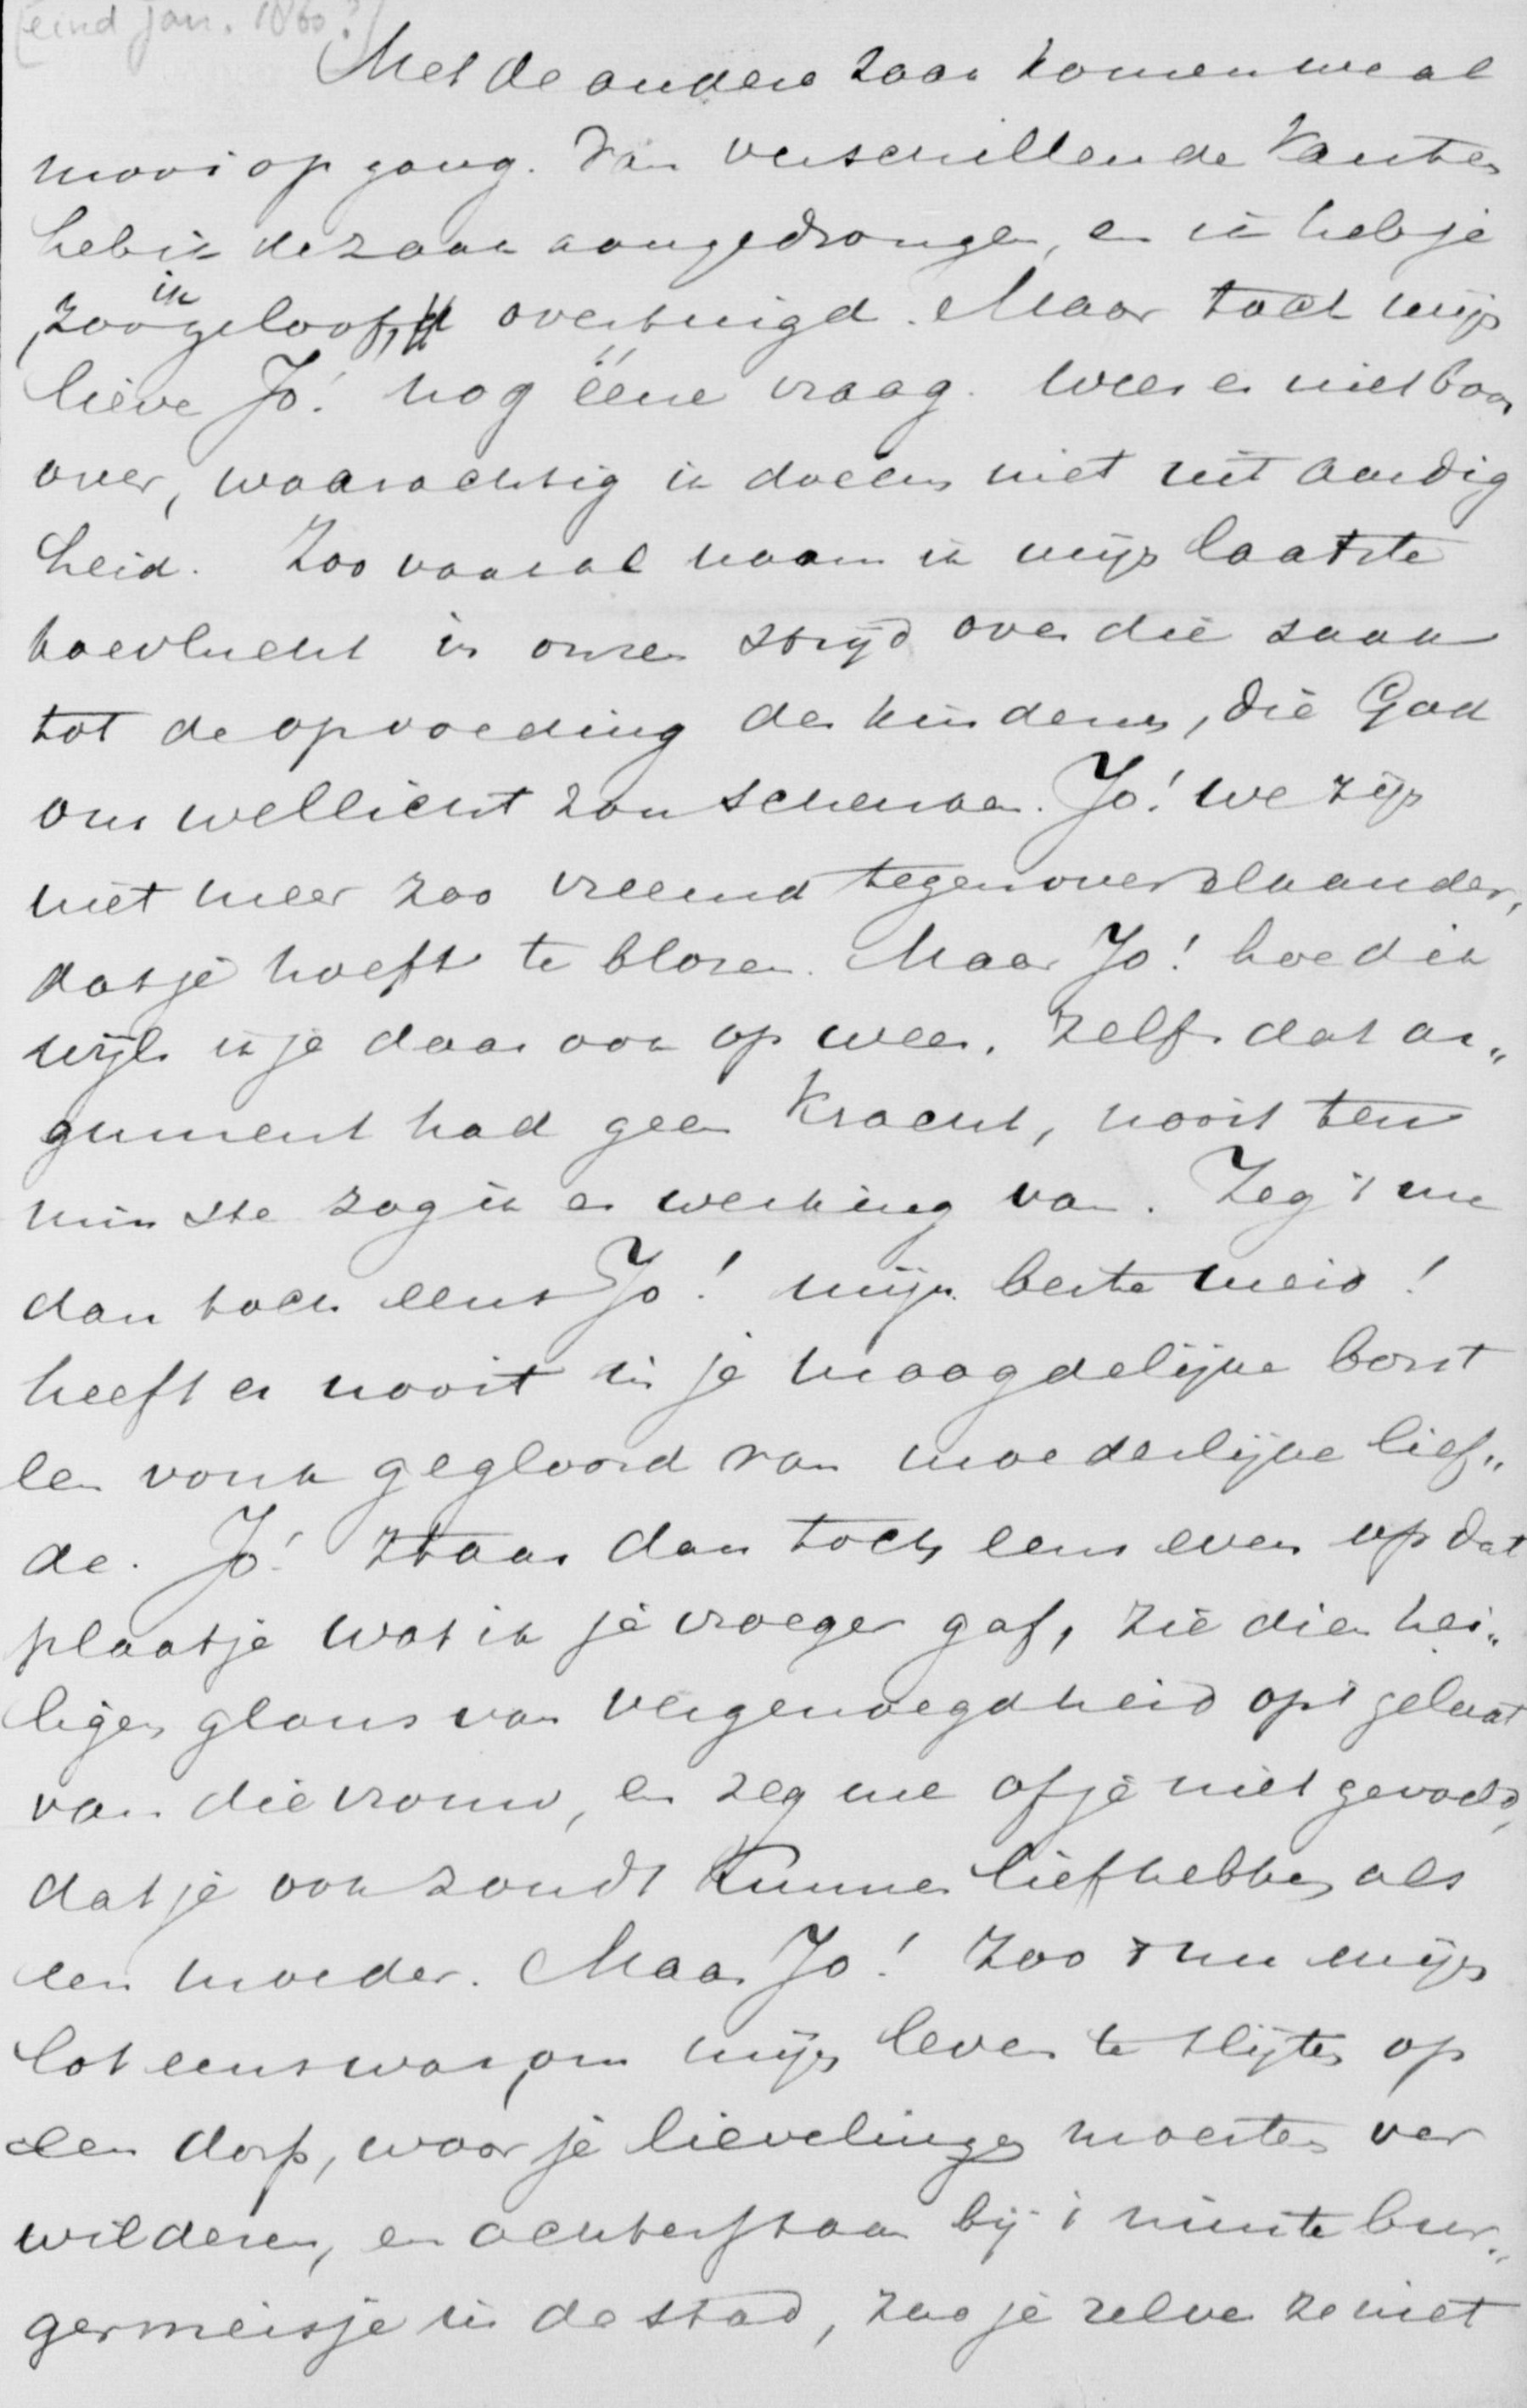 [eind jan. 1860?]
Met de andere zaak komen we al
mooi op gang. Van verschillende kanten
heb ik de zaak aangedrongen, en ik heb je
zoo ik geloof, overtuigd. Maar toch mijn
lieve Jo! nog ééne vraag. Wees er niet boos
over, waarachtig ik doe en niet uit aardig
heid. Zoo vaak al nam ik mijn laatste
toevlucht in onzen strijd over die zaak
tot de opvoeding der kinderen, die God
ons wellicht zou schenken. Jo! we zijn
niet meer zoo vreemd tegenover elkander,
dat je hoeft te blozen. Maar Jo! hoe dik
wijls ik je daar ook op wees, zelfs dat ar„
gument had geen kracht, nooit ten
minste zag ik er werking van. Zeg 't me
dan toch eens Jo! mijn beste meid!
heeft er nooit in je maagdelijke borst
een vonk gegloord van moederlijke lief„
de. Jo! staar dan toch eens even op dat
plaatje wat ik je vroeger gaf, zie dien hei„
ligen glans van vergenoegdheid op 't gelaat
van die vrouw, en zeg me of je niet gevoeld,
dat je ook zoudt kunnen liefhebben als
een moeder. Maar Jo! zoo 't nu mijn
lot eens was, om mijn leven te slijten op
een dorp, waar je lievelingen moesten ver
wilderen, en achterstaan bij 't minste bur„
germeisje in de stad, zou je zelve ze niet